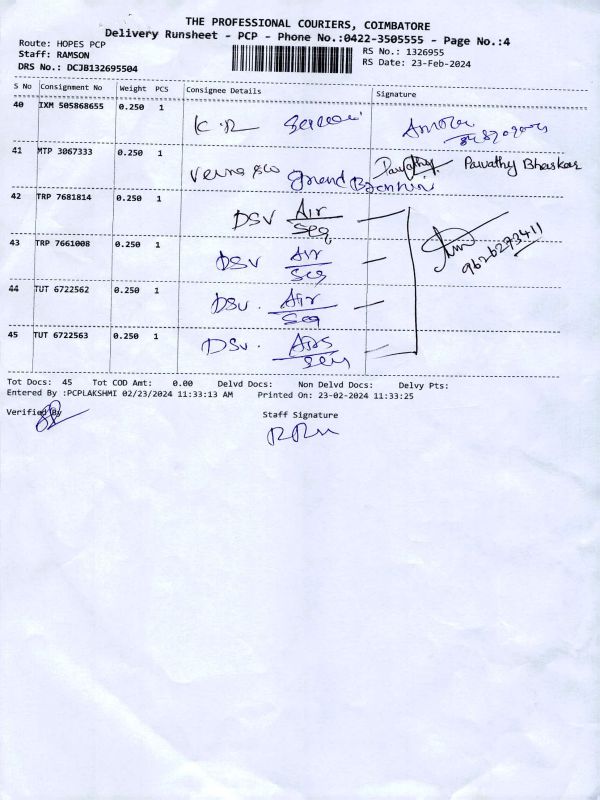 THE PROFESSIONAL COURIERS, COIMBATORE
Delivery Runsheet - PCP - Phone No.:0422-3505555 - Page No.:4
Route: HOPES PCP
Staff: RAMSON
DRS No.: DCJB132695504
RS No.: 1326955
RS Date: 23-Feb-2024
S No Consignment No Weight PCS Consignee Details Signature
40 IXM 505868655 0.250 1
K.R
41 MTP 3067333 0.250 1
Grand Parvathy Parvathy Bhaskar
42 TRP 7681814 0.250 1
DSV Air
Seq
43 TRP 7661008 0.250 1
DSV Air
Seq
9626273411
44 TUT 6722562 0.250 1
DSV. Air
Seq
45 TUT 6722563 0.250 1
DSV.
Tot Docs: 45 Tot COD Amt: 0.00 Delvd Docs: Non Delvd Docs: Delvy Pts:
Entered By :PCPLAKSHMI 02/23/2024 11:33:13 AM Printed On: 23-02-2024 11:33:25
Verified By
Staff Signature